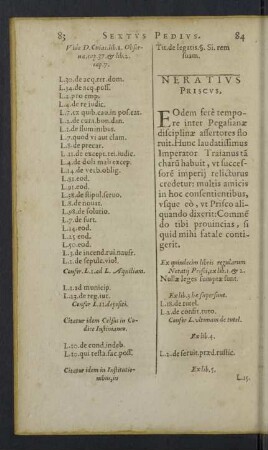 83 SEXTUS PEDIUS. 84
Vide D. Cuiac. lib. 2. Obser-
cap. 7.
L. 32. de acq. rer. dom.
L. 34. de acq. poss.
L. 2. pro emp.
L. 4. de re iudic.
L. 7. ex quib. cau. in pos. eat.
L. 2. de cura. bon. dan.
L. 2. de fluminibus.
L. 7. quod vi aut clam.
L. 8. de precar.
L. 11. de except. rei iudic.
L. 4. de doli mali excep.
L. 14. de verb. oblig.
L. 31. eod.
L. 32. eod.
L. 28. de stipul. seruo.
L. 8. de nouat.
L. 98. de solutio.
L. 7. de furt.
L. 24. eod.
L. 25. eod.
L. 40. eod.
L. 3. de incend. rui. naufr.
L. 2. de sepulc. viol.
Confer L. 2. ad L. Aquiliam.
L. 22. ad municip.
L. 22. de reg. iur.
Citatur idem Celsus in Co-
dice Iustinianeo.
L. 10. de cond. indeb.
L. 10. qui testa. fac. poss.
Citatur idem in Institutio-
nibus, in
Tit. de legatis. §. Si. rem
suam.
NERATIUS
PRISCUS.
EOdem ferè tempo-
re inter Pegasianæ
disciplinæ assertores flo
ruit. Hunc laudatissimus
Imperator Traianus tã
charũ habuit, vt succes-
sorẽ imperij relicturus
crederetur: multis amicis
in hoc consentientibus,
vsque eò, vt Prisco ali-
quando dixerit: Commẽ
do tibi prouincias, si
quid mihi fatale conti-
gerit.
Ex quindecim libris regularum
Neratij Prisci, ex lib. 1. & 2.
Nullæ leges sumptæ sunt.
Ex lib. 3. hæ supersunt.
L. 18. de tutel.
L. 2. de condit. tutor.
Confer L. vltimam de tutel.
Ex lib. 4.
L. 2. de seruit. præd. rustic.
Ex lib. 5.
L. 15.